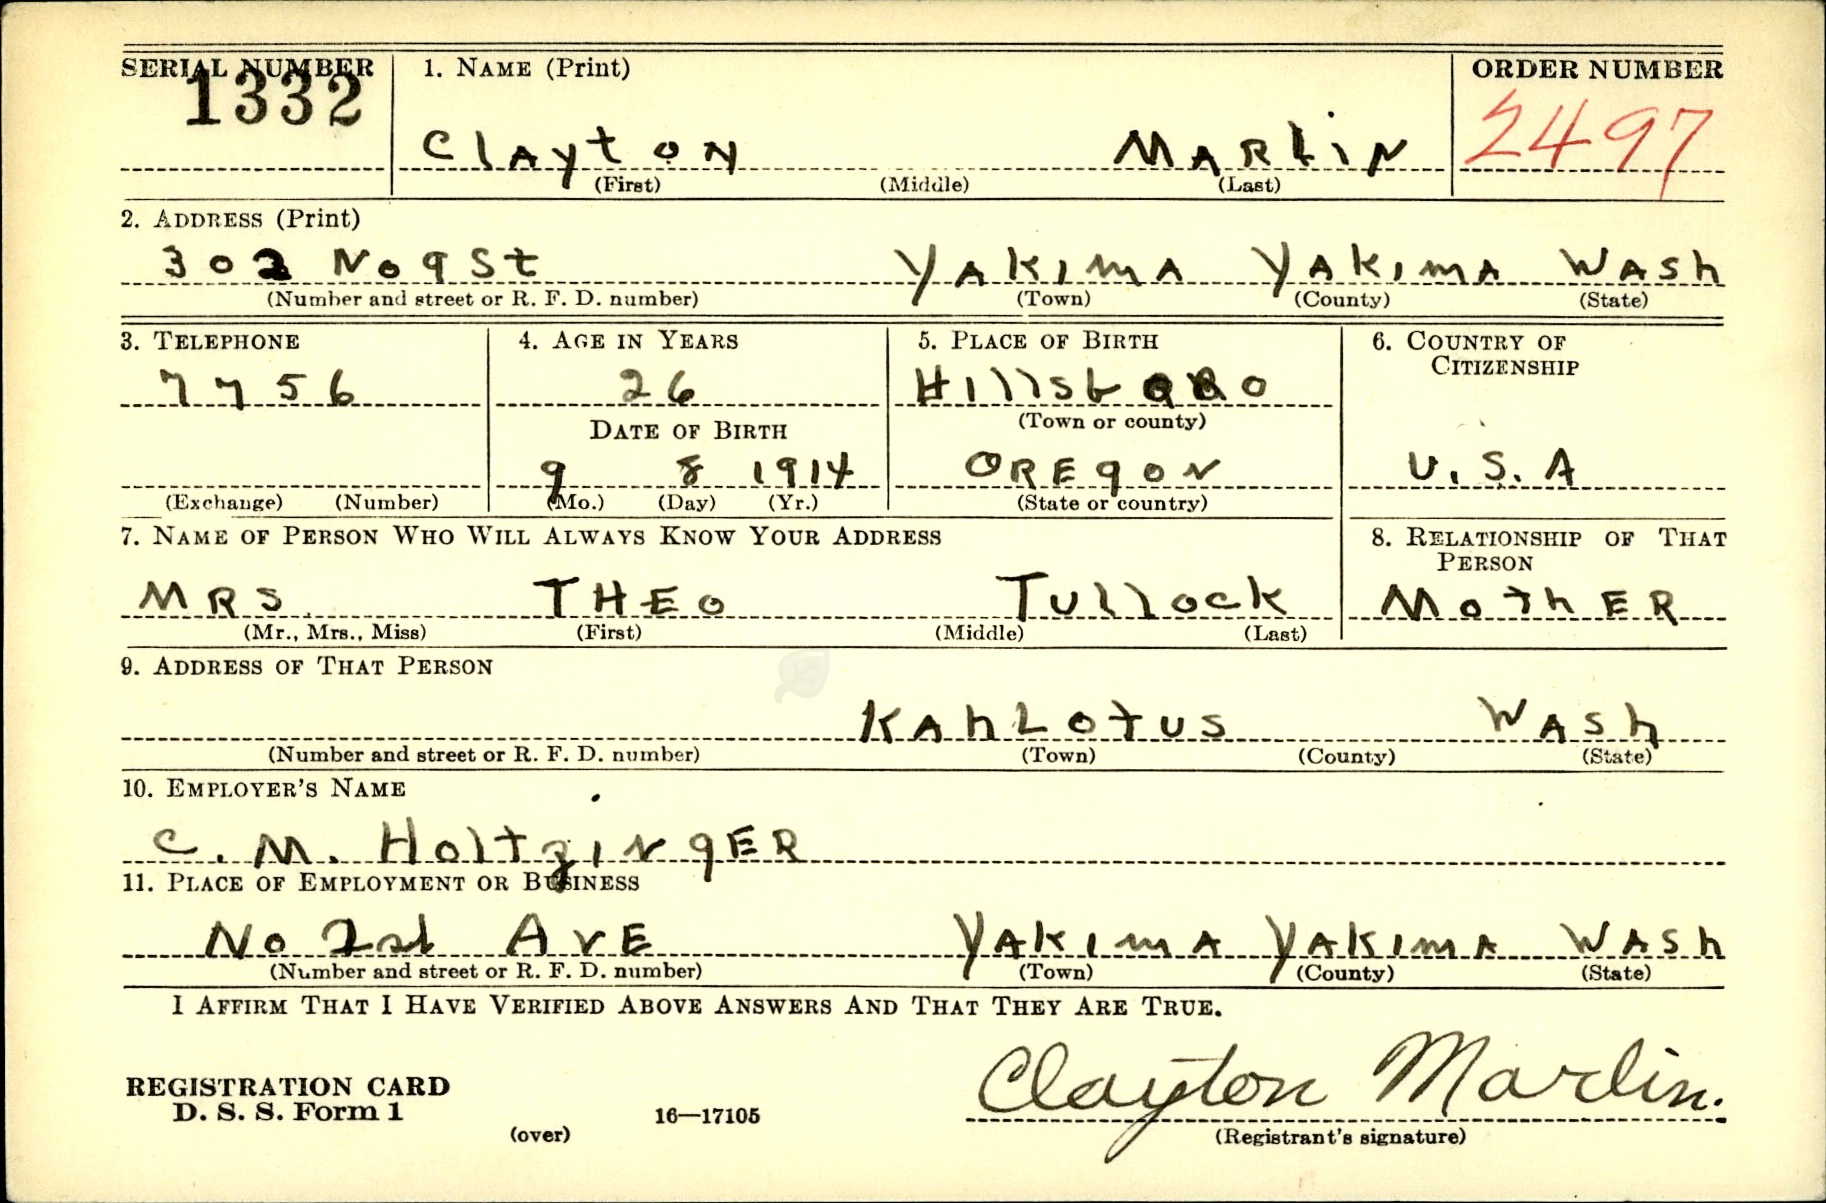 SERIAL NUMBER 1. NAME (Print) ORDER NUMBER
1332 Clayton Marlin 2497
(First) (Middle) (Last)
2. ADDRESS (Print)
302 No 9 St Yakima Yakima Wash
(Number and street or R. F. D. number) (Town) (County) (State)
3. TELEPHONE 4. AGE IN YEARS 5. PLACE OF BIRTH 6. COUNTRY OF CITIZENSHIP
7756 26 Hillsboro
DATE OF BIRTH (Town or county)
9 8 1914 OREgON U.S.A
(Exchange) (Number) (Mo.) (Day) (Yr.) (State or country)
7. NAME OF PERSON WHO WILL ALWAYS KNOW YOUR ADDRESS 8. RELATIONSHIP OF THAT PERSON
MRS. THEO Tullock MothER
(Mr., Mrs., Miss) (First) (Middle) (Last)
9. ADDRESS OF THAT PERSON
KAhLotus WASh
(Number and street or R. F. D. number) (Town) (County) (State)
10. EMPLOYER'S NAME
C. M. HoltzingER
11. PLACE OF EMPLOYMENT OR BUSINESS
No 1st AvE YAKIMA YAKIMA WASh
(Number and street or R. F. D. number) (Town) (County) (State)
I AFFIRM THAT I HAVE VERIFIED ABOVE ANSWERS AND THAT THEY ARE TRUE.
Clayton Marlin.
REGISTRATION CARD
D. S. S. Form 1 16—17105
(over) (Registrant's signature)